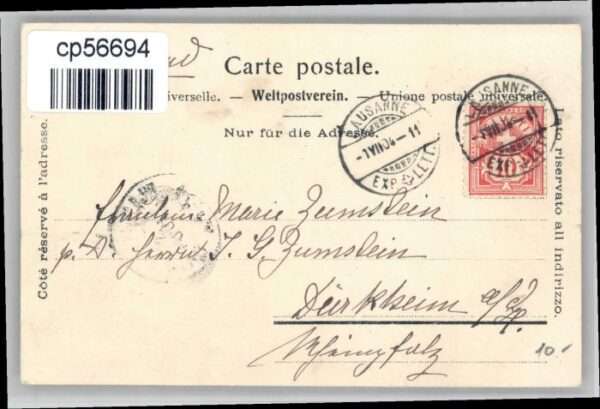 cp56694
Carte postale.
iverselle. — Weltpostverein. — Unione postale universale.
Nur für die Adresse.
Côté réservé à l'adresse.
Lato riservato all indirizzo.
LAUSANNE
-1 VII 04 - 11
EXP. LETT.
LAUSANNE
VII 04 - 11
EXP. LETT.
10
Fräulein Marie Zumstein
p. A. Herrn J. G. Zumstein
Dürkheim a/d
Rheinpfalz
10.-